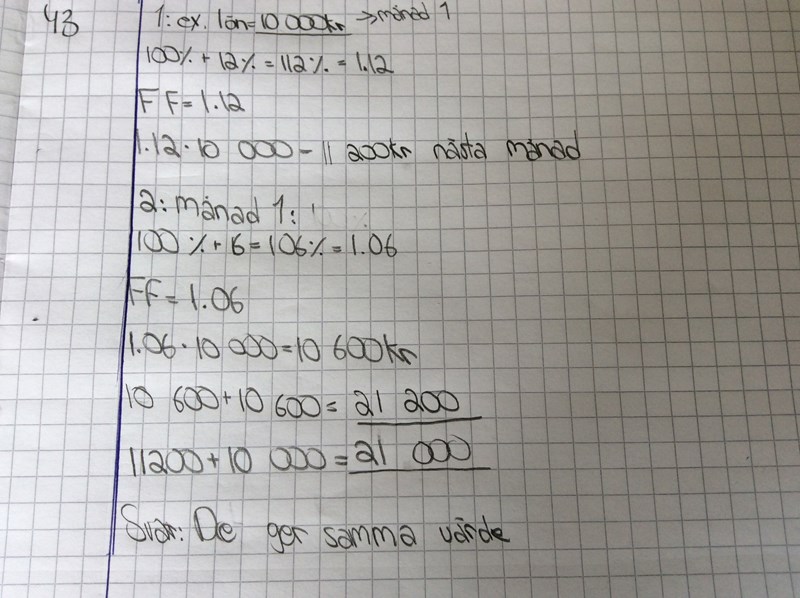 43
1: ex. lön=10 000kr →månad 1
100% + 12% = 112% = 1.12
FF= 1.12
1.12·10 000 - 11 200kr nästa månad
2: månad 1:
100 %+6=106%=1.06
FF= 1.06
1.06·10 000=10 600kr
10 600+10 600= 21 200
11200+10 000=21 000
Svar: De ger samma värde